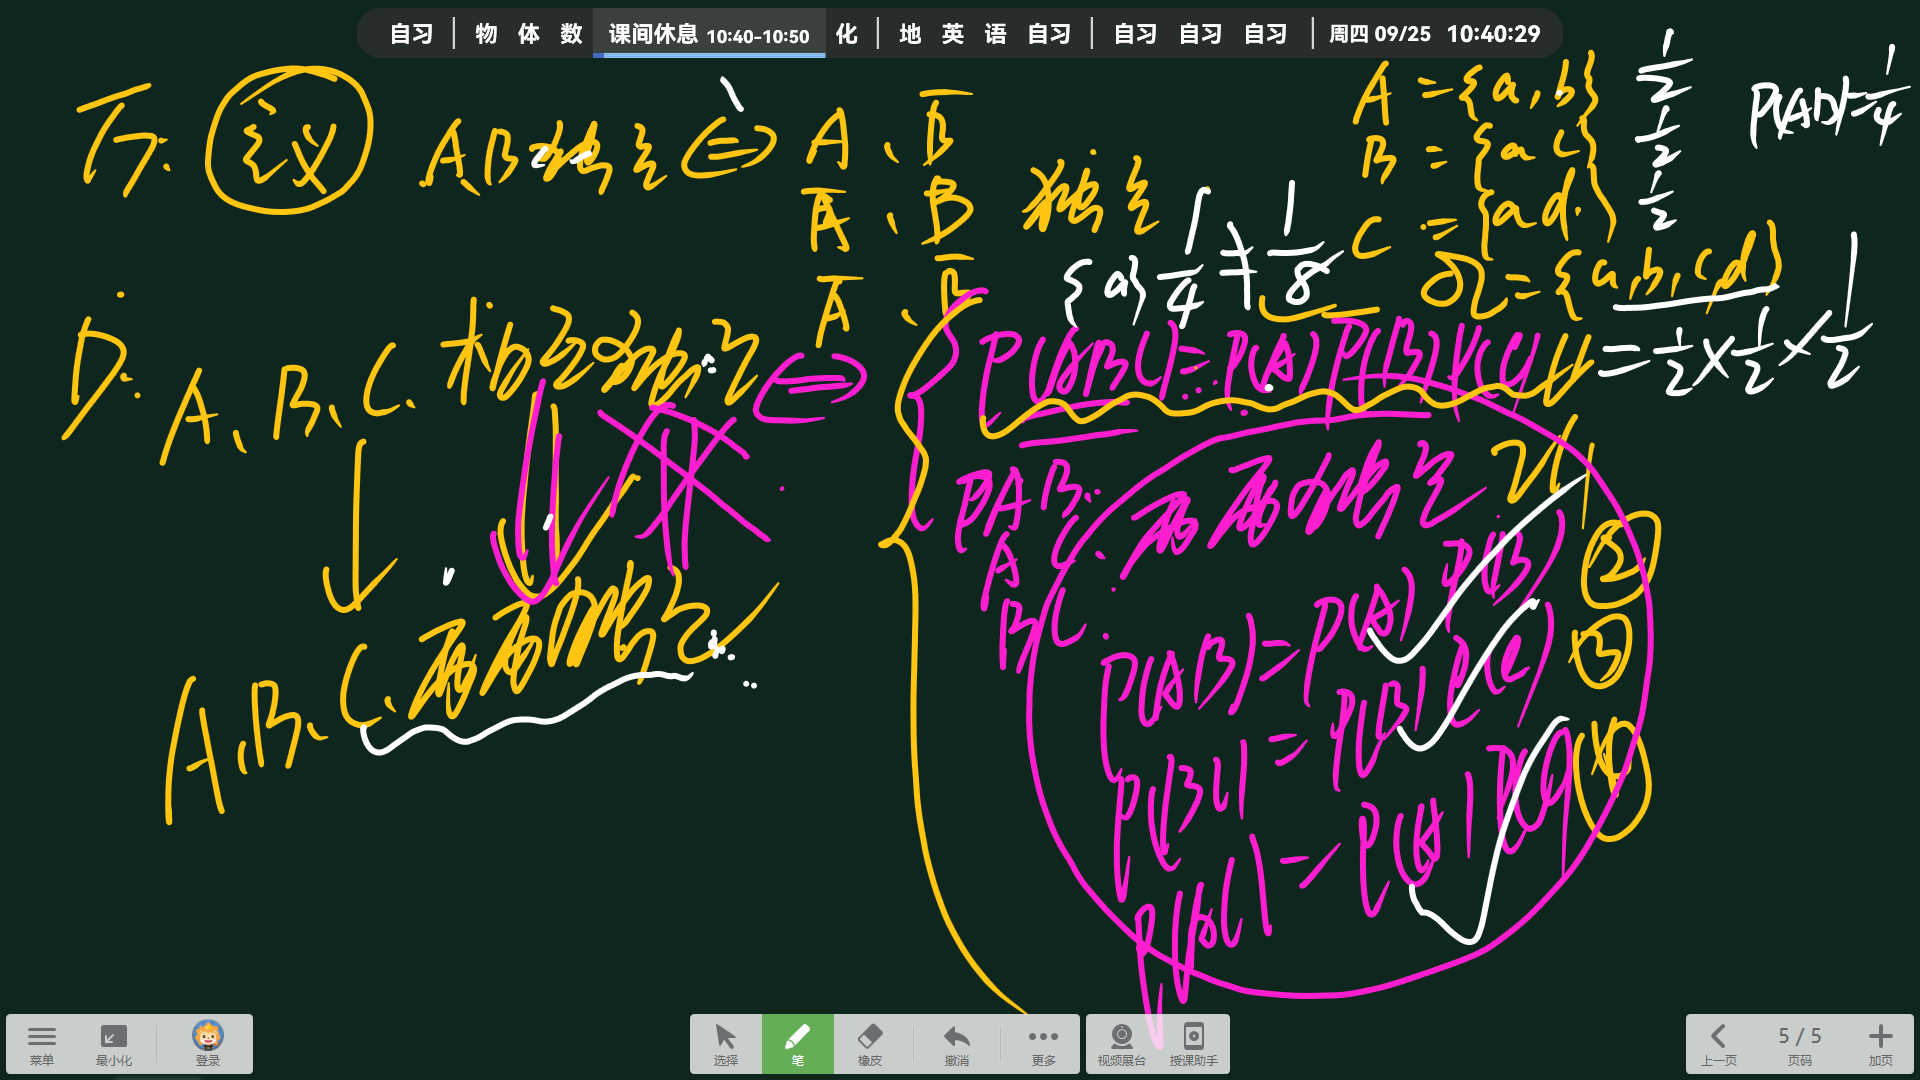 自习 | 物 体 数 课间休息 10:40-10:50 化 | 地 英 语 自习 | 自习 自习 自习 | 周四 09/25 10:40:29
A、B独立 ⇔ A、B̅
A̅、B 独立
A̅、B̅
A = {a,b} 1/2
B = {a c} 1/2
C = {a d} 1/2
Ω = {a,b,c,d}
{a} 1/4 ≠ 1/8
= 1/2 × 1/2 × 1/2
D: A、B、C、相互独立 ⇔
P(ABC) = P(A)P(B)P(C)
A B
A C
B C
两两独立
P(AB) = P(A)P(B) ②
P(BC) = P(B)P(C) ③
P(AC) = P(A)P(C) ④
A、B、C、两两独立
菜单 最小化 登录
选择 笔 橡皮 撤消 更多
视频展台 授课助手
上一页 5 / 5 页码 加页